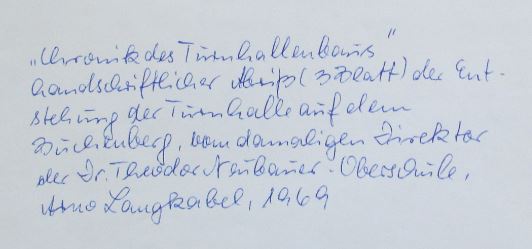 „Chronik des Turnhallenbaus“
handschriftlicher Abriß (3 Blatt) der Ent-
stehung der Turnhalle auf dem
Buchenberg, vom damaligen Direktor
der Dr. Theodor Neubauer-Oberschule,
Arno Langkabel, 1969